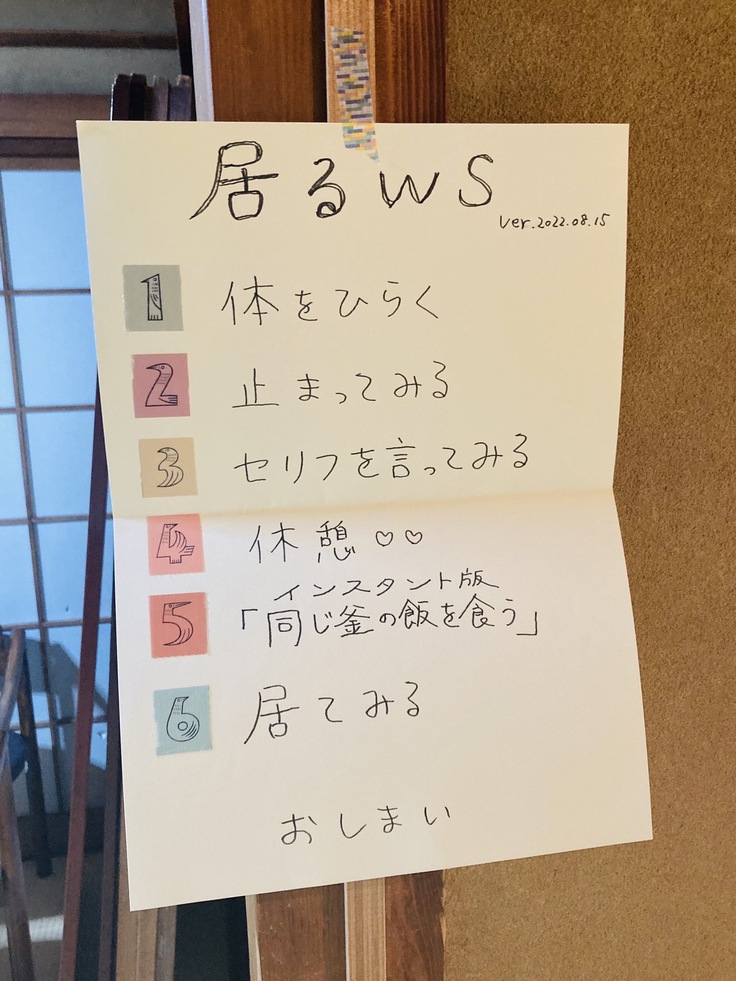 居るWS
ver.2022.08.15
1 体をひらく
2 止まってみる
3 セリフを言ってみる
4 休憩♡♡
インスタント版
5 「同じ釜の飯を食う」
6 居てみる
おしまい